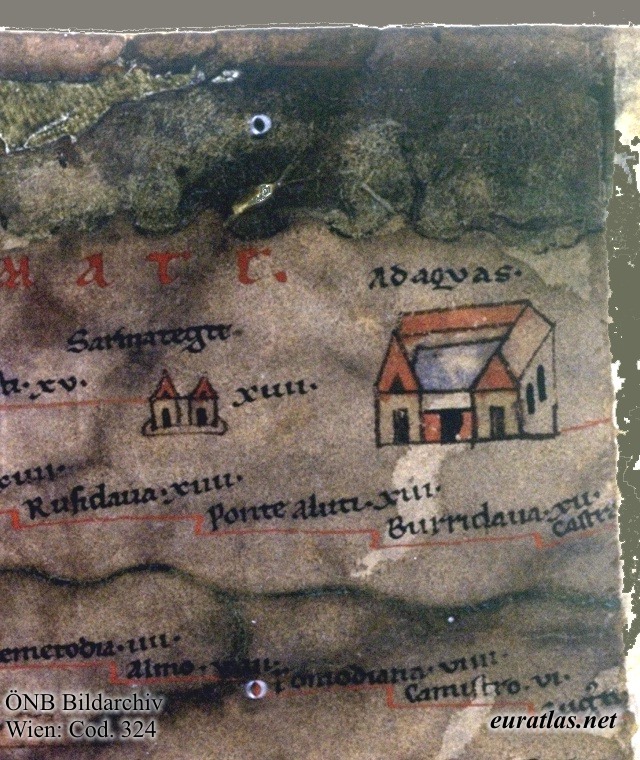 M A T E.
ADAQVAS.
Sarmategte.
xv. xiiii.
xiiii. Rusidaua. xiiii. Ponte aluti. xiii. Burridaua. xii. Castra
emetodia. iiii. Almo. Pomodiana. viiii Camistro. vi.
ÖNB Bildarchiv
Wien: Cod. 324
euratlas.net